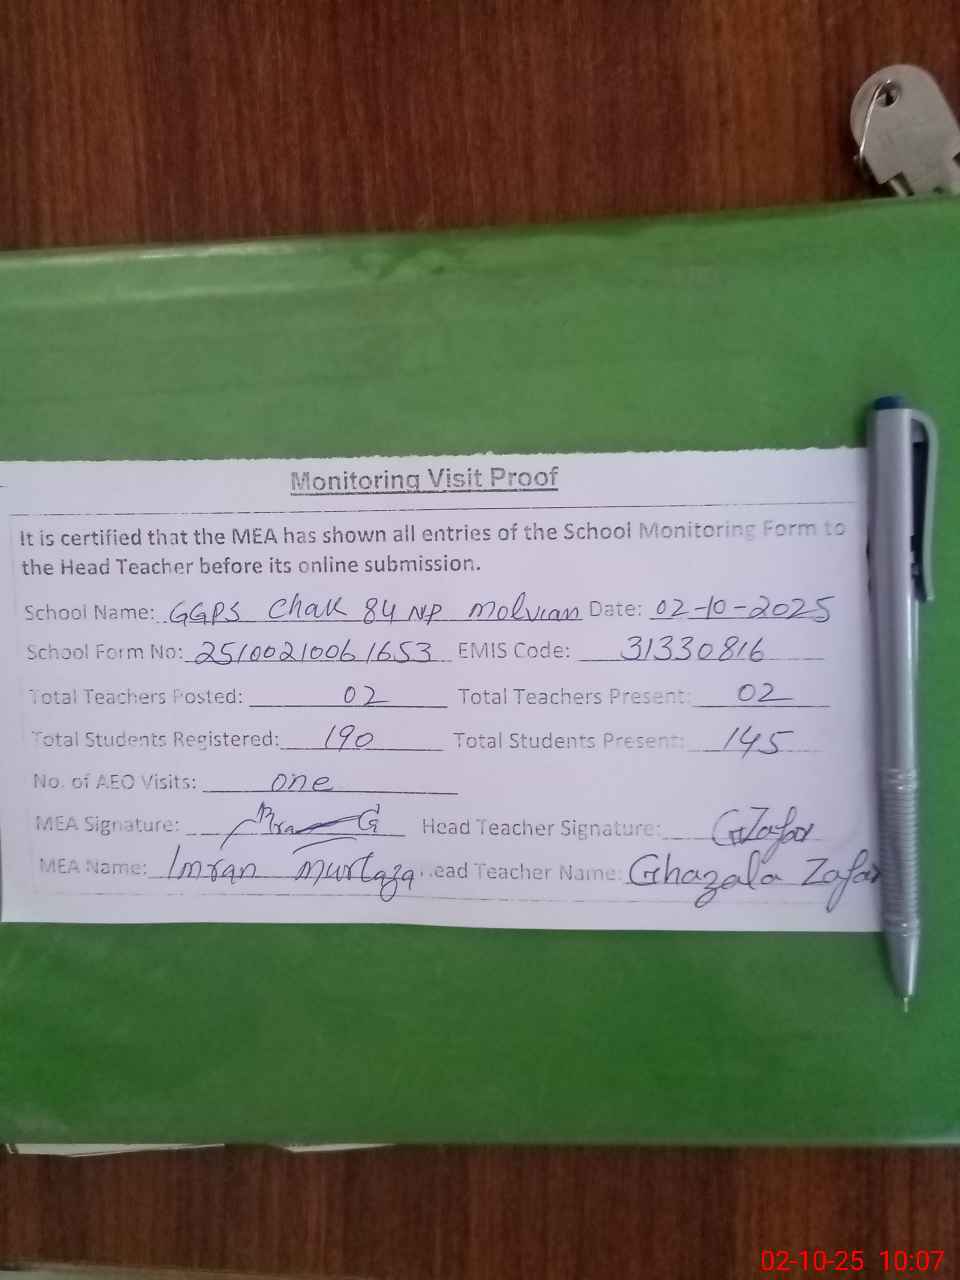 Monitoring Visit Proof
It is certified that the MEA has shown all entries of the School Monitoring Form to
the Head Teacher before its online submission.
School Name: GGPS Chak 84 NP Molvian Date: 02-10-2025
School Form No: 2510021006 1653 EMIS Code: 31330816
Total Teachers Posted: 02 Total Teachers Present: 02
Total Students Registered: 190 Total Students Present: 145
No. of AEO Visits: one
MEA Signature: Head Teacher Signature: GZafar
MEA Name: Imran Murtaza ead Teacher Name: Ghazala Zafar
02-10-25 10:07